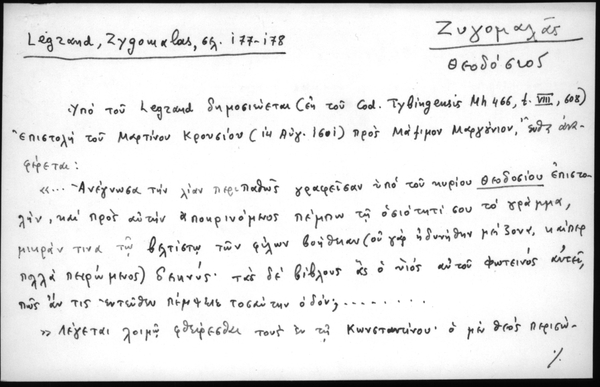 Legrand, Zygomalas, σελ. 177-178
Ζυγομαλᾶς
Θεοδόσιος
Ὑπό τοῦ Legrand δημοσιεύεται (ἐκ τοῦ Cod. Tybingensis Mh 466, t. VIII, 608)
ἐπιστολή τοῦ Μαρτίνου Κρουσίου (14 Αὐγ. 1601) πρός Μάξιμον Μαργούνιον, ἔνθα ἀνα-
φέρεται:
«... Ἀνέγνωσα τήν λίαν περιπαθῶς γραφεῖσαν ὑπό τοῦ κυρίου Θεοδοσίου ἐπιστο-
λήν, καί πρός αὐτήν ἀποκρινόμενος πέμπω τῇ ὁσιότητί σου τό γράμμα,
μικράν τινα τῷ βελτίστῳ τῶν φίλων βοήθειαν (οὐ γάρ ἠδυνήθην μείζονα, καίπερ
πολλά πειρώμενος) δεικνύς· τάς δέ βίβλους ἅς ὁ υἱός αὐτοῦ Φωτεινός αἰτεῖ,
πῶς ἄν τις ἐντεῦθεν πέμψειε τοσαύτην ὁδόν; ........
» Λέγεται λοιμῷ φθείρεσθαι τούς ἐν τῇ Κωνσταντίνου· ὁ μέν θεός περισώ-
./.